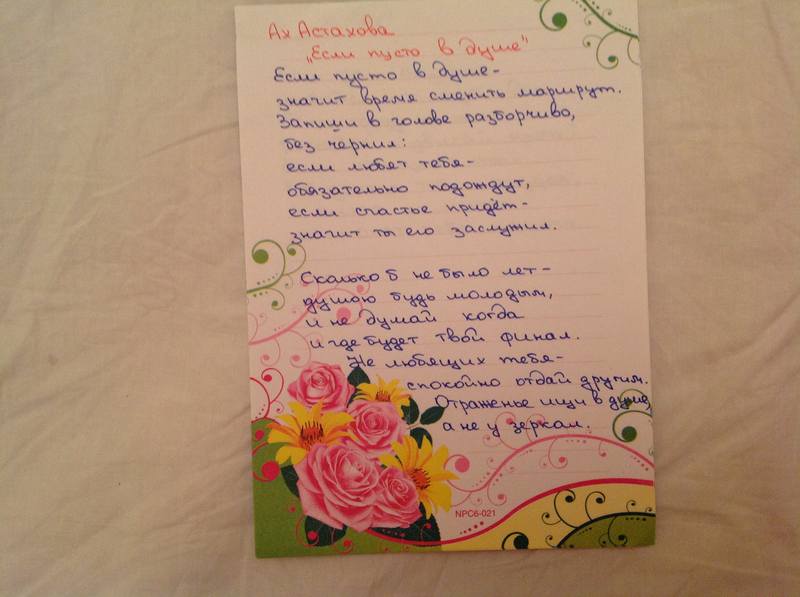 Ах Астахова
„Если пусто в душе"
Если пусто в душе-
значит время сменить маршрут.
Запиши в голове разборчиво,
без чернил:
если любят тебя-
обязательно подождут,
если счастье придёт-
значит ты его заслужил.
Сколько б не было лет-
душою будь молодым,
и не думай когда
и где будет твой финал.
Не любящих тебя-
спокойно отдай другим.
Отраженье ищи в душе,
а не у зеркал.
NPC6-021